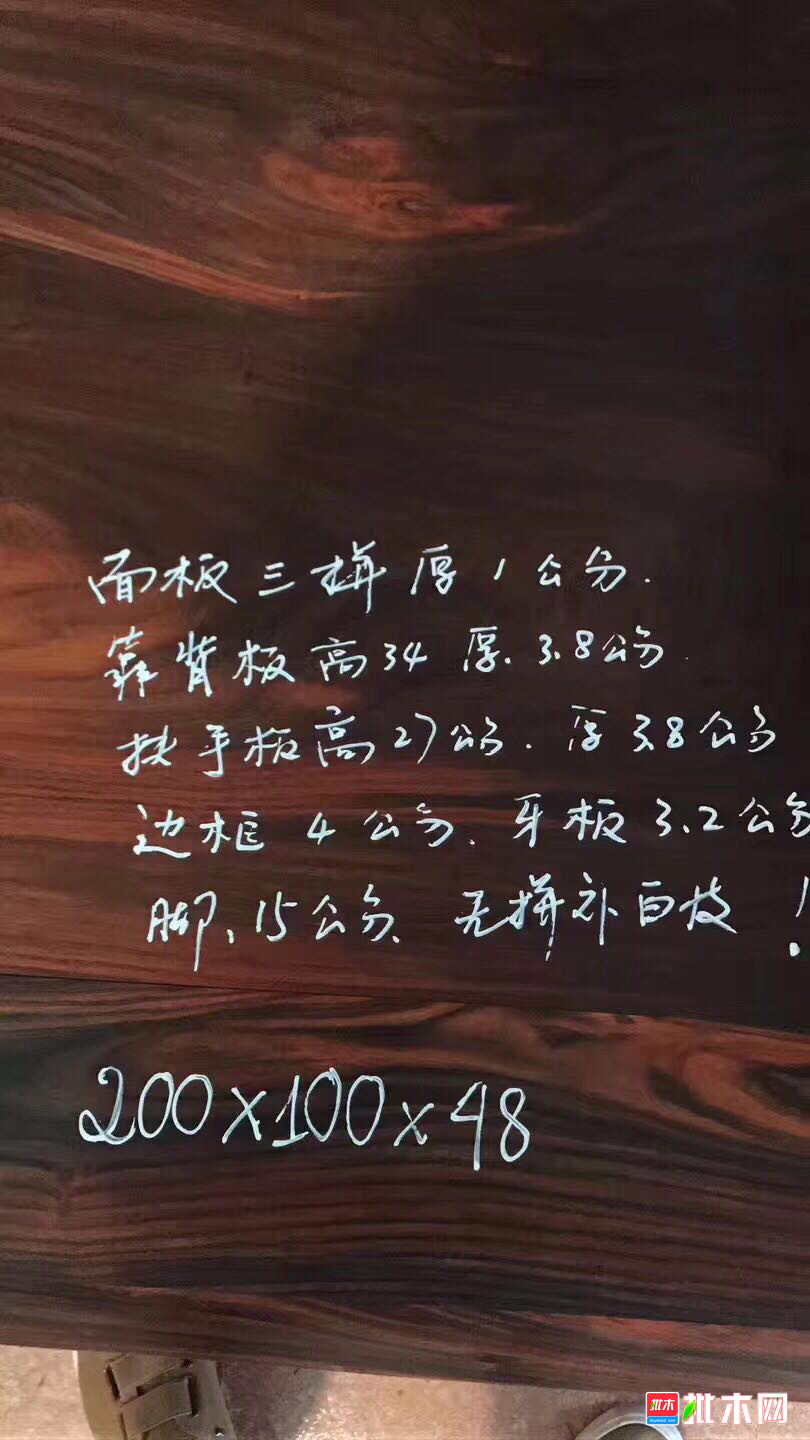 面板三拼厚1公分.
靠背板高34厚.3.8公分
扶手板高27公分.厚3.8公分
边框4公分.牙板3.2公分
脚、15公分、无拼补白皮!
200x100x48
批木
批木网